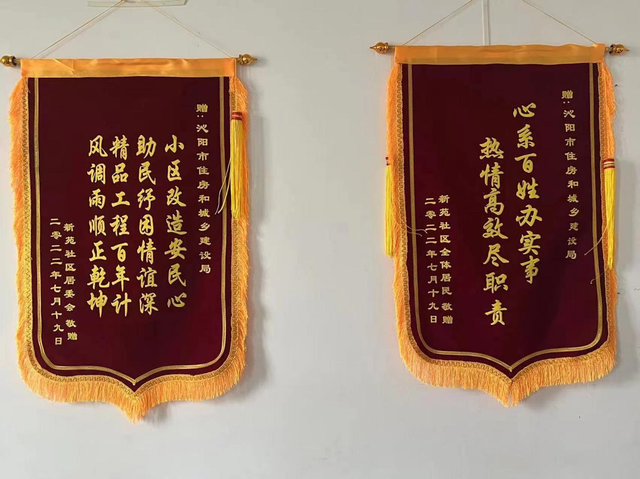 赠：沁阳市住房和城乡建设局
小区改造安民心
助民纾困情谊深
精品工程百年计
风调雨顺正乾坤
新苑社区居委会 敬赠
二零二二年七月十九日
赠：沁阳市住房和城乡建设局
心系百姓办实事
热情高效尽职责
新苑社区全体居民 敬赠
二零二二年七月十九日